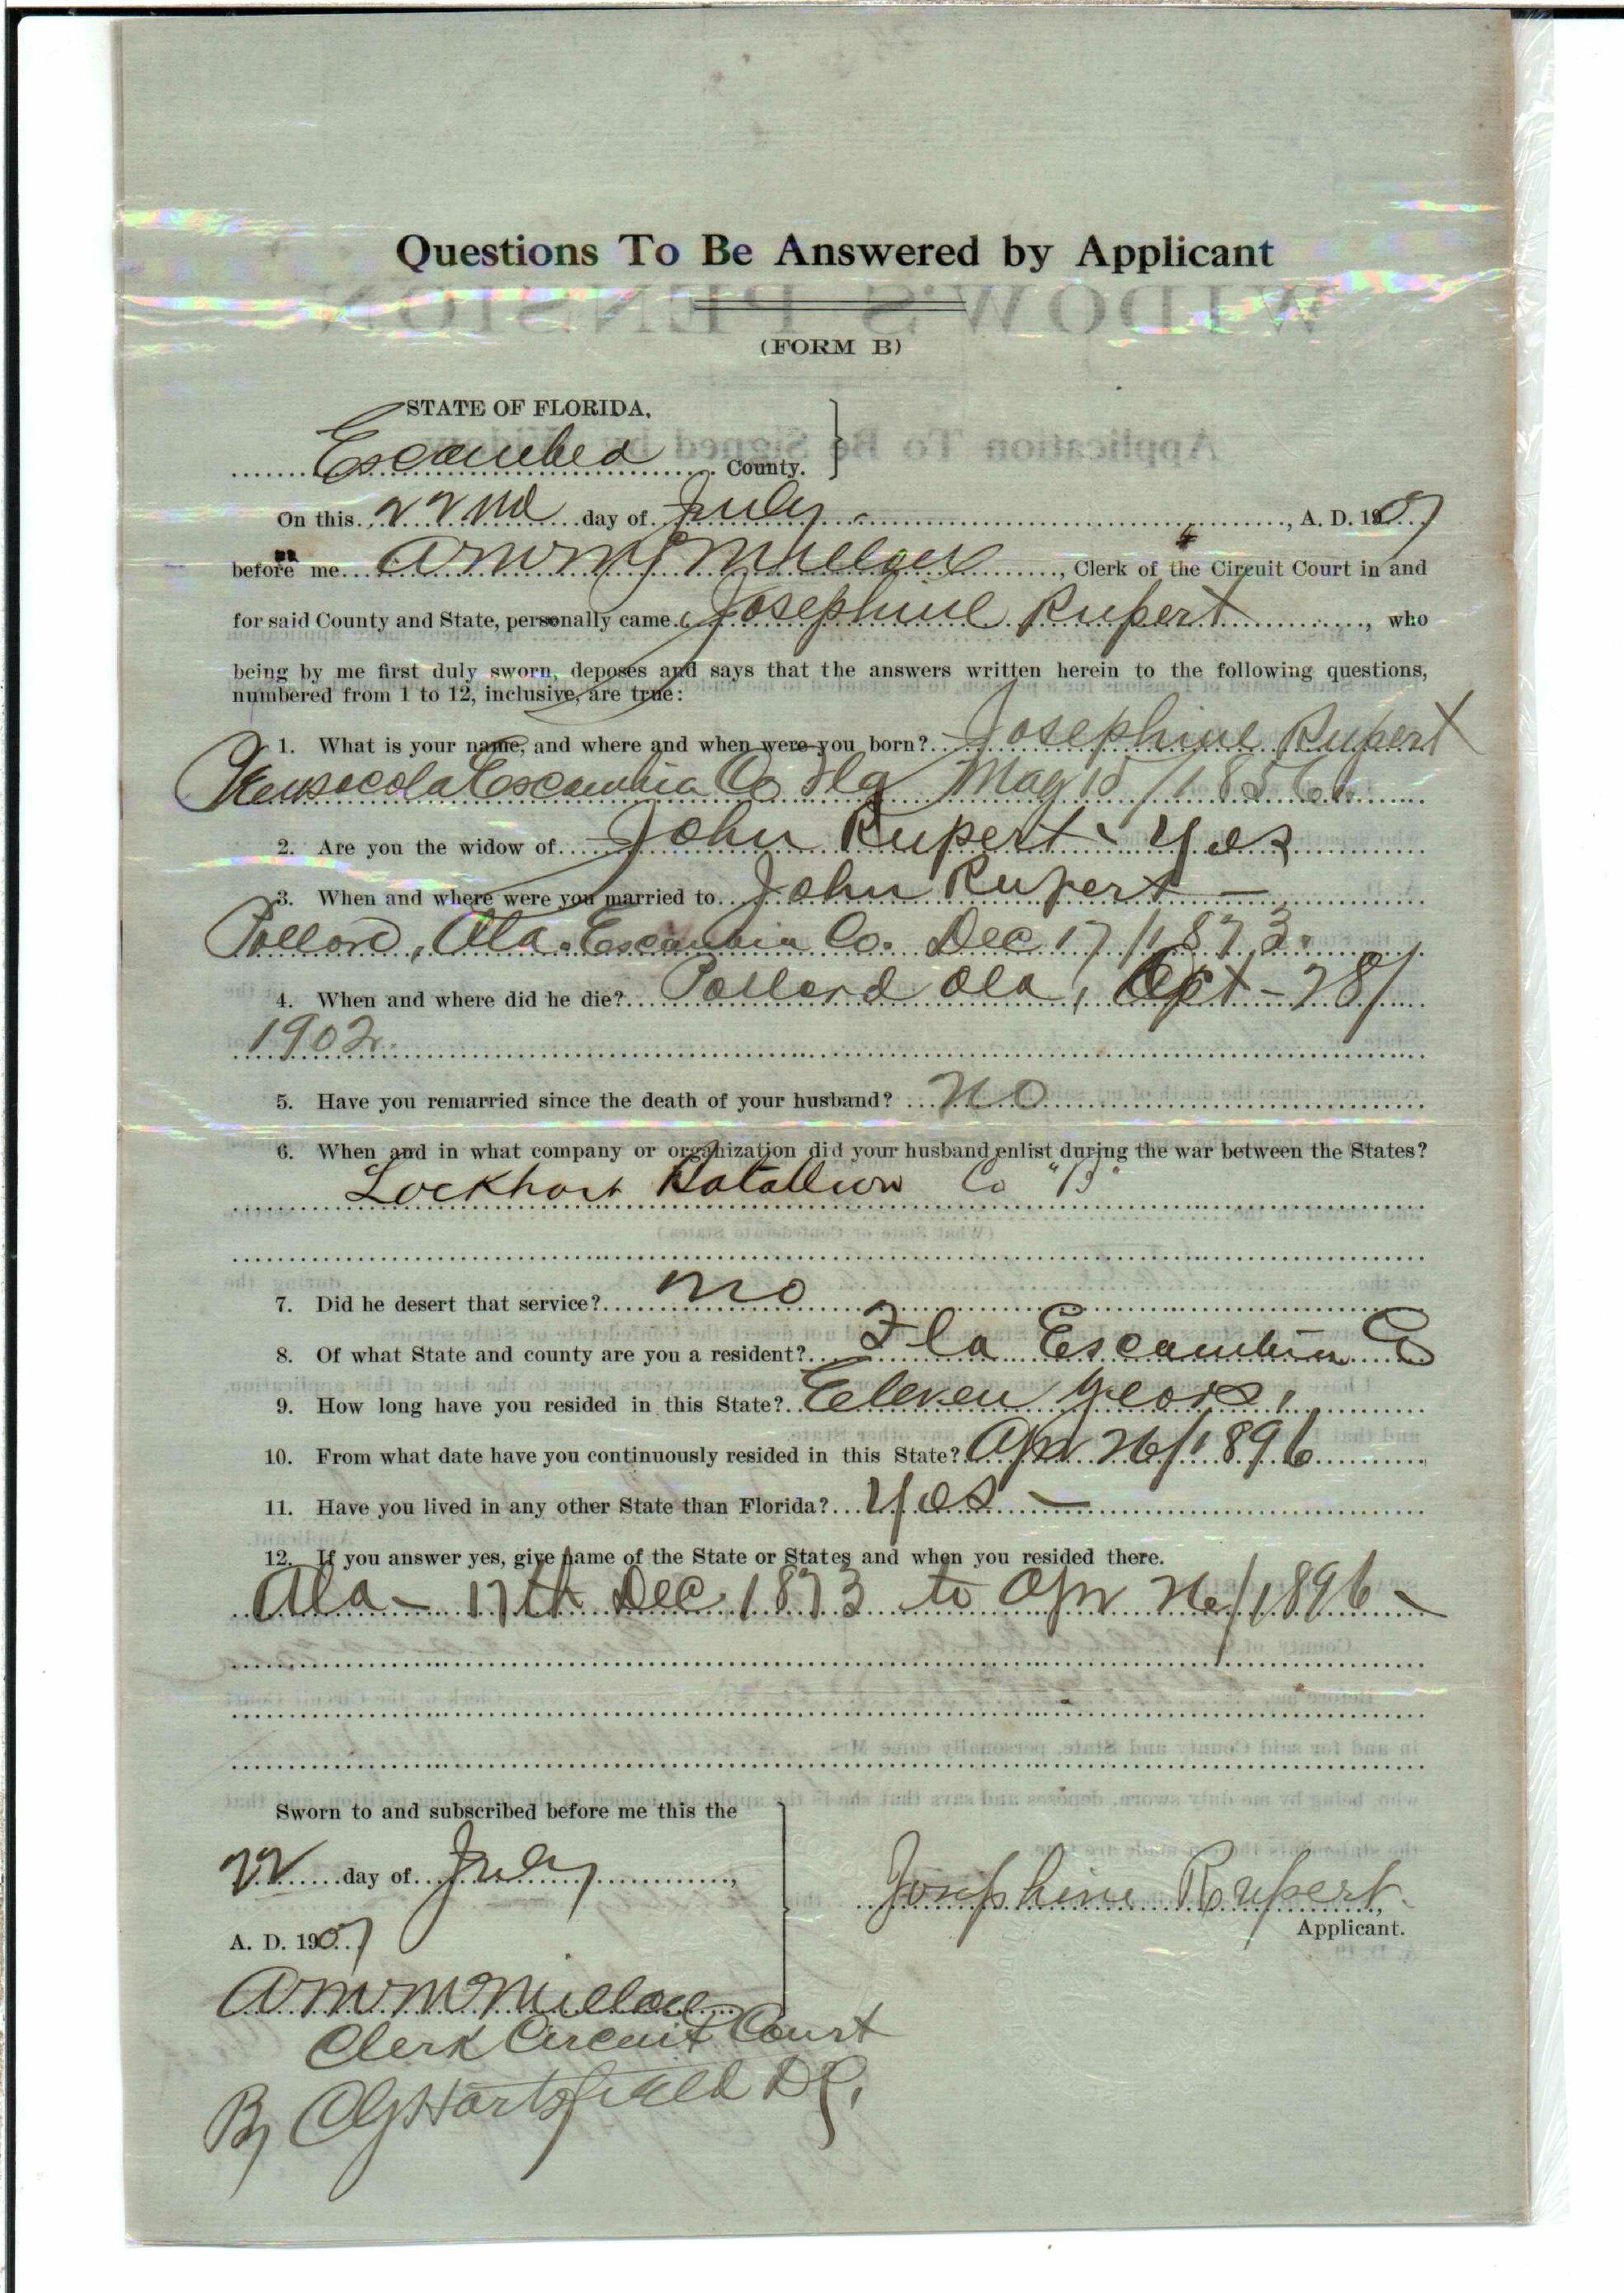 Questions To Be Answered by Applicant
(FORM B)
STATE OF FLORIDA,
Escambia County.
On this 22nd day of July, A. D. 1907
before me A M McMillan, Clerk of the Circuit Court in and
for said County and State, personally came Josephine Rupert, who
being by me first duly sworn, deposes and says that the answers written herein to the following questions,
numbered from 1 to 12, inclusive, are true:
1. What is your name, and where and when were you born? Josephine Rupert
Pensacola Escambia Co Fla May 15/1856
2. Are you the widow of John Rupert - Yes
3. When and where were you married to John Rupert —
Pollard, Ala. Escambia Co. Dec 17/1873.
4. When and where did he die? Pollard Ala, Oct - 28/
1902.
5. Have you remarried since the death of your husband? No
6. When and in what company or organization did your husband enlist during the war between the States?
Lockhart Batallion Co "B"
7. Did he desert that service? No
8. Of what State and county are you a resident? Fla Escambia Co
9. How long have you resided in this State? Eleven years,
10. From what date have you continuously resided in this State? Apr 26/1896
11. Have you lived in any other State than Florida? Yes —
12. If you answer yes, give name of the State or States and when you resided there.
Ala - 17th Dec 1873 to Apr 26/1896 -
Sworn to and subscribed before me this the
22 day of July,
A. D. 1907
Josephine Rupert,
Applicant.
A M McMillan
Clerk Circuit Court
By Hartsfield D C,